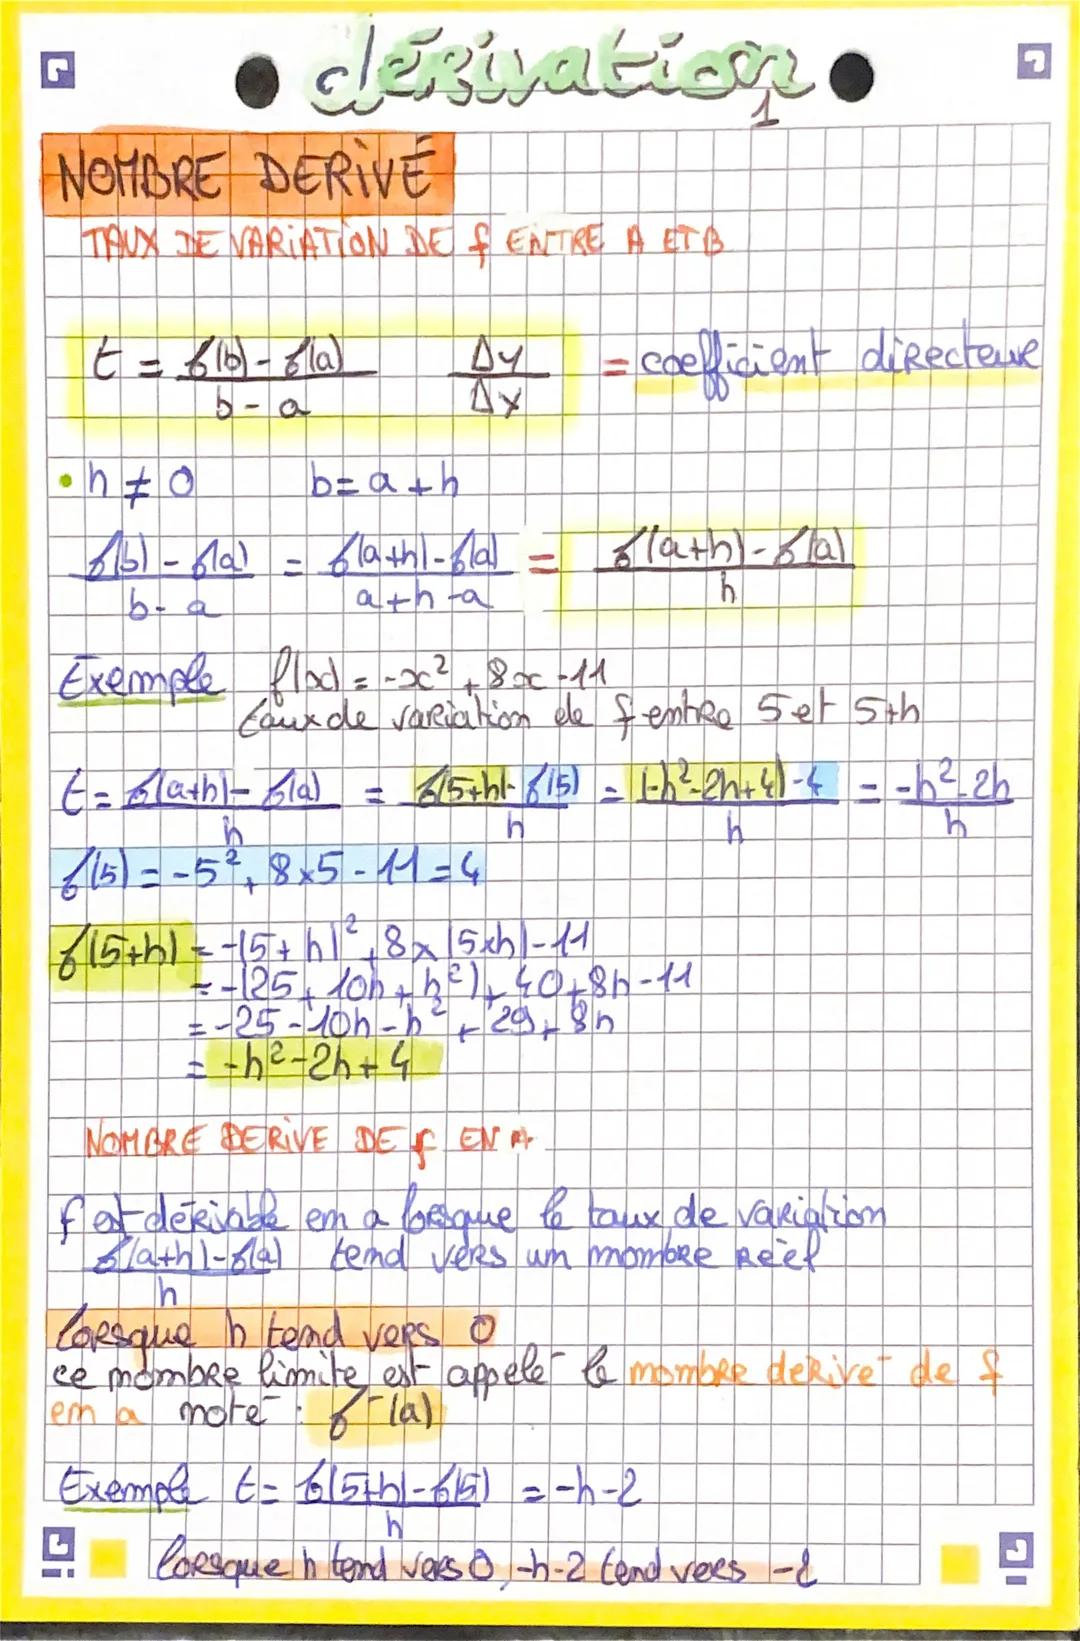 dérivation
1
NOMBRE DERIVÉ
TAUX DE VARIATION DE f ENTRE A ET B
t = f(b) - f(a) / b - a    Δy / Δx = coefficient directeur
• h ≠ 0    b = a + h
f(b) - f(a) / b - a = f(a+h) - f(a) / a + h - a = f(a+h) - f(a) / h
Exemple f(x) = -x² + 8x - 11
taux de variation de f entre 5 et 5+h
t = f(a+h) - f(a) / h = f(5+h) - f(5) / h = (-h² - 2h + 4) - 4 / h = -h² - 2h / h
f(5) = -5² + 8×5 - 11 = 4
f(5+h) = -(5+h)² + 8×(5+h) - 11
= -(25 + 10h + h²) + 40 + 8h - 11
= -25 - 10h - h² + 29 + 8h
= -h² - 2h + 4
NOMBRE DERIVE DE f EN A
f est dérivable en a lorsque le taux de variation
f(a+h) - f(a) / h tend vers un nombre réel
lorsque h tend vers 0
ce nombre limite est appelé le nombre derivé de f
en a noté : f'(a)
Exemple t = f(5+h) - f(5) / h = -h - 2
lorsque h tend vers 0, -h-2 tend vers -2